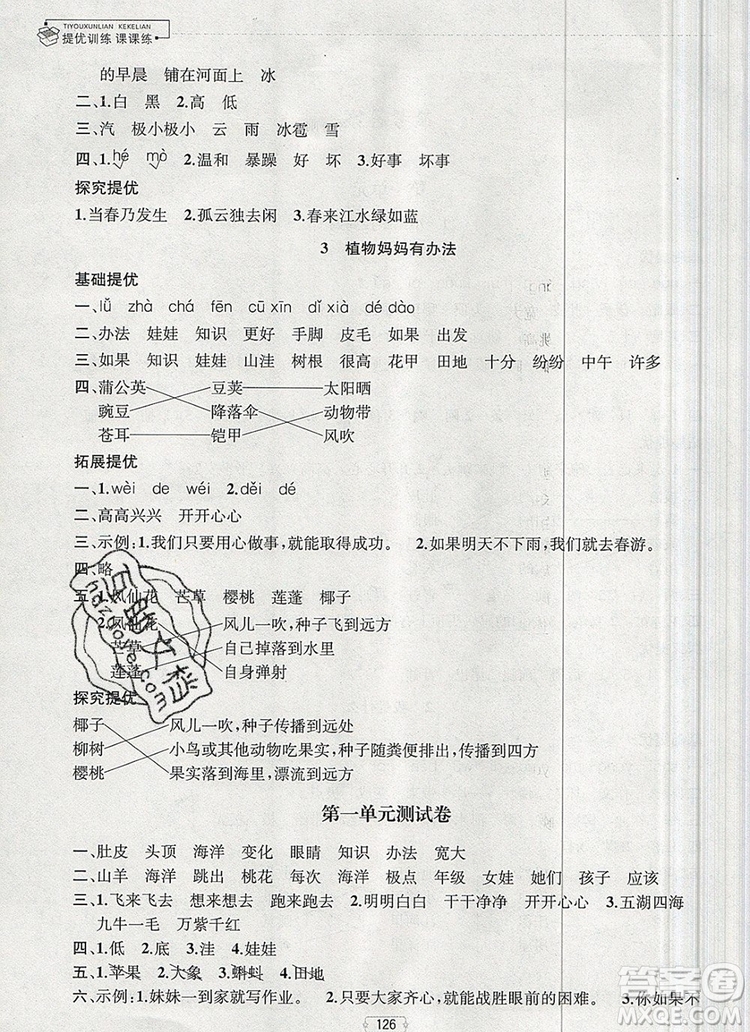 TIYOUXUNLIAN KEKELIAN
提优训练 课课练
的早晨 铺在河面上 冰
二、1.白 黑 2.高 低
三、汽 极小极小 云 雨 冰雹 雪
四、1.hé mò 2.温和 暴躁 好 坏 3.好事 坏事
探究提优
1.当春乃发生 2.孤云独去闲 3.春来江水绿如蓝
3 植物妈妈有办法
基础提优
一、lǚ zhà chá fēn cū xīn dǐ xià dé dào
二、办法 娃娃 知识 更好 手脚 皮毛 如果 出发
三、如果 知识 娃娃 山洼 树根 很高 花甲 田地 十分 纷纷 中午 许多
四、蒲公英 豆荚 太阳晒
豌豆 降落伞 动物带
苍耳 铠甲 风吹
拓展提优
一、1.wèi de wéi 2.děi dé
二、高高兴兴 开开心心
三、示例:1.我们只要用心做事,就能取得成功。 2.如果明天不下雨,我们就去春游。
四、略
五、1.凤仙花 芒草 樱桃 莲蓬 椰子
2.凤仙花 风儿一吹,种子飞到远方
芒草 自己掉落到水里
莲蓬 自身弹射
探究提优
椰子 风儿一吹,种子传播到远处
柳树 小鸟或其他动物吃果实,种子随粪便排出,传播到四方
樱桃 果实落到海里,漂流到远方
第一单元测试卷
一、肚皮 头顶 海洋 变化 眼睛 知识 办法 宽大
二、山羊 海洋 跳出 桃花 每次 海洋 极点 年级 女娃 她们 孩子 应该
三、1.飞来飞去 想来想去 跑来跑去 2.明明白白 干干净净 开开心心 3.五湖四海
九牛一毛 万紫千红
四、1.低 2.底 3.洼 4.娃娃
五、1.苹果 2.大象 3.蝌蚪 4.田地
六、示例:1.妹妹一到家就写作业。 2.只要大家齐心,就能战胜眼前的困难。 3.你如果不
126
百晓文档
hdzxoye.com
答案圈
MXQE.COM